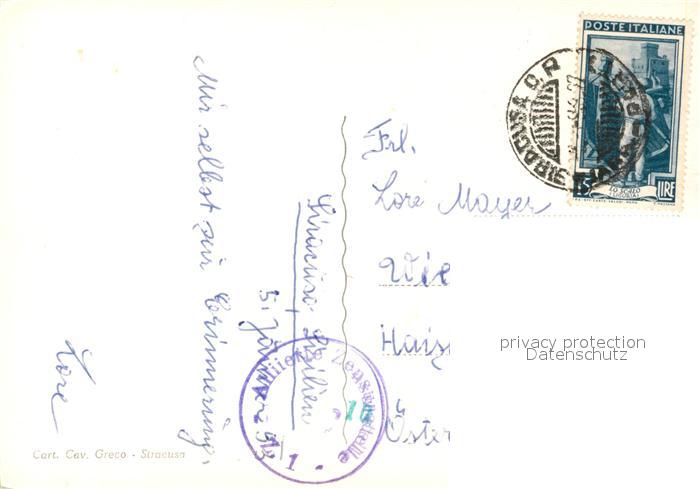 Siracusa, Sizilien
5. Jänner
Mir selbst zur Erinnerung,
Lore
Frl.
Lore Mayer
Wie
Haiz
Öster
POSTE ITALIANE
LO SCALO
LIGURIA
LIRE
SIRACUSA
Alliierte Zensurstelle
1
privacy protection
Datenschutz
Cart. Cav. Greco - Siracusa